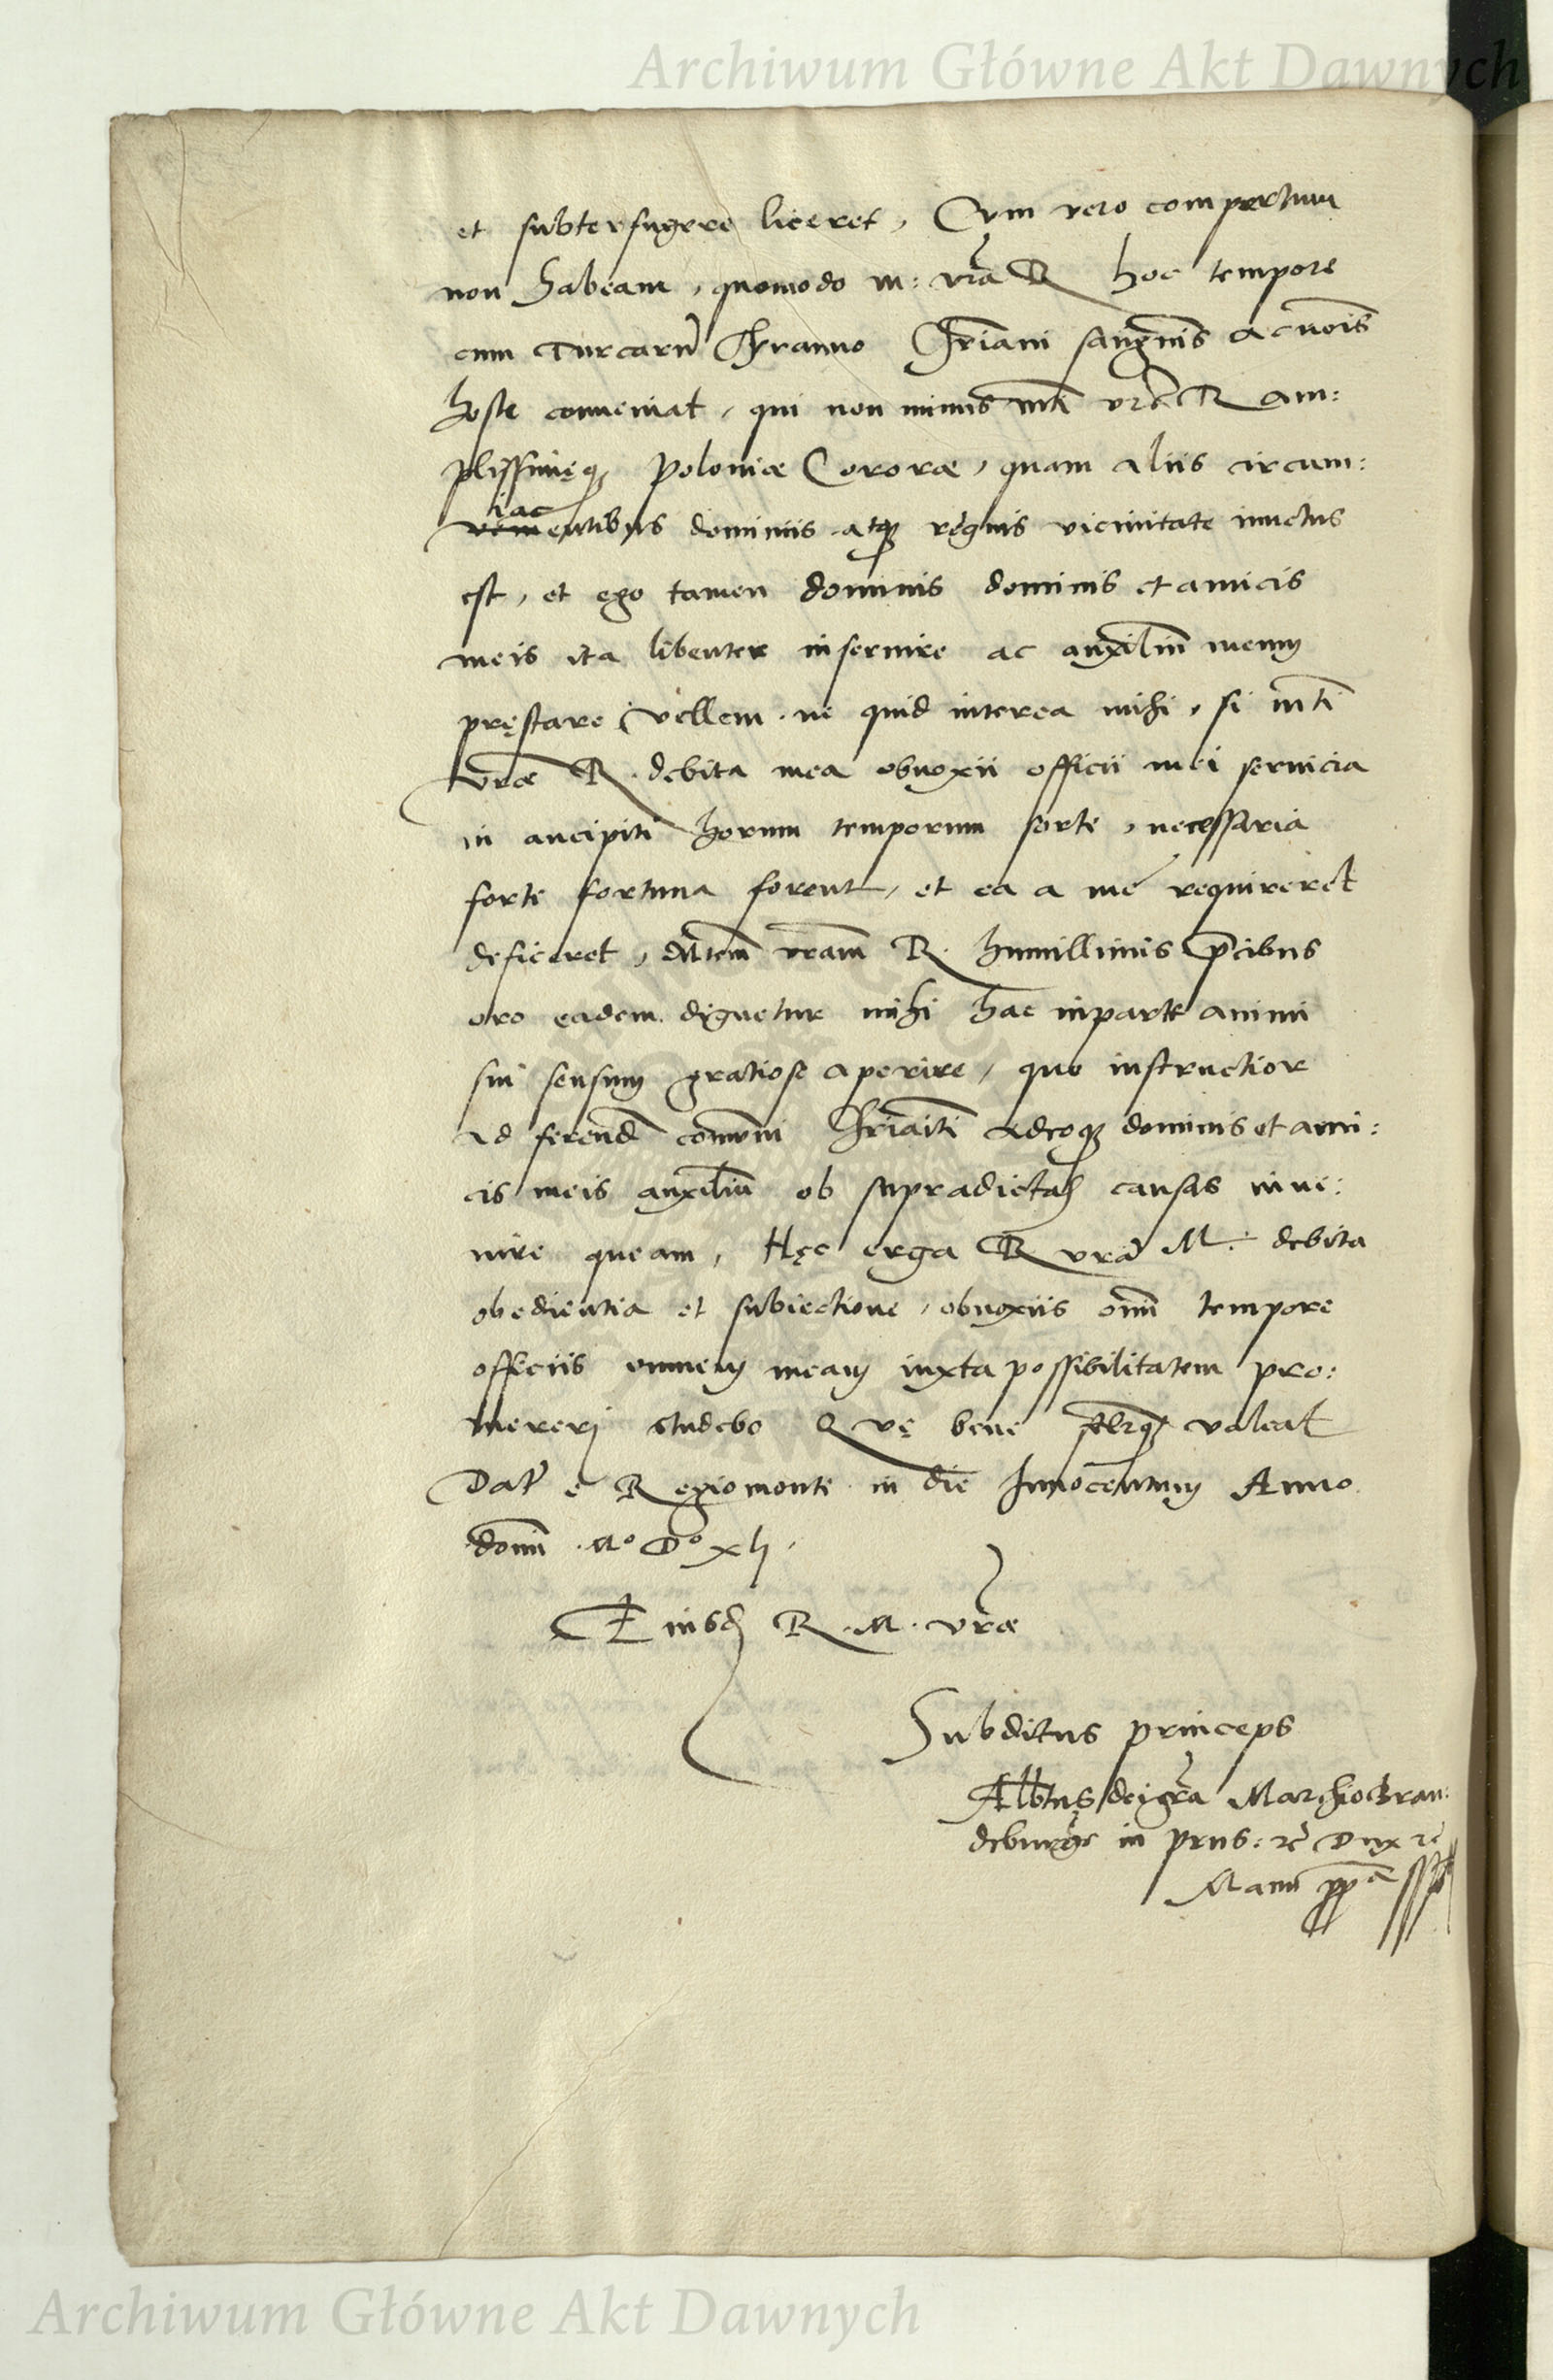 Archiwum Główne Akt Dawnych
et subterfugere liceret, Cum vero compertum
non habeam, quomodo m: vra R hoc tempore
cum Turcarũ Tyranno Chriani sanguĩs
hoste conveniat, qui non minus mti vrae R am:
plissimęq Poloniae Cororae, quam aliis circum:
iac
entibus dominiis atq regnis vicinitate iunctus
est, et ego tamen dominis et amicis
meis ita libenter inservire ac auxiliũ meum
pręstare vellem ne quid interea mihi, si mti
vrae R. debita mea obnoxii officii mei servicia
in ancipiti horum temporum sorte, necessaria
forte fortuna forent, et ea a me requireret
deficeret, Mtem vram R. humillimis p̃cibus
oro eadem dignetur mihi hac in parte animi
sui sensum gratiose aperire, quo instructior
ad ferend comuni Chrianiti adeoq dominis et ami:
cis meis auxiliũ ob supradictas causas inve:
nire queam, Hęc erga R vrã M: debita
obedientia et subiectione, obnoxiis omĩ tempore
officiis omnem meam iuxta possibilitatem pro:
mereri studebo Quę bene valeat
Dat e Regiomonte in die Innocentum Anno
domĩ M° D° xlj.
Eiusd R. M. vrae
Subditus princeps
Albtus dei gra Marchio Bran:
deburg in Prus: zc Dux zc
Manu ppa sspt
Archiwum Główne Akt Dawnych